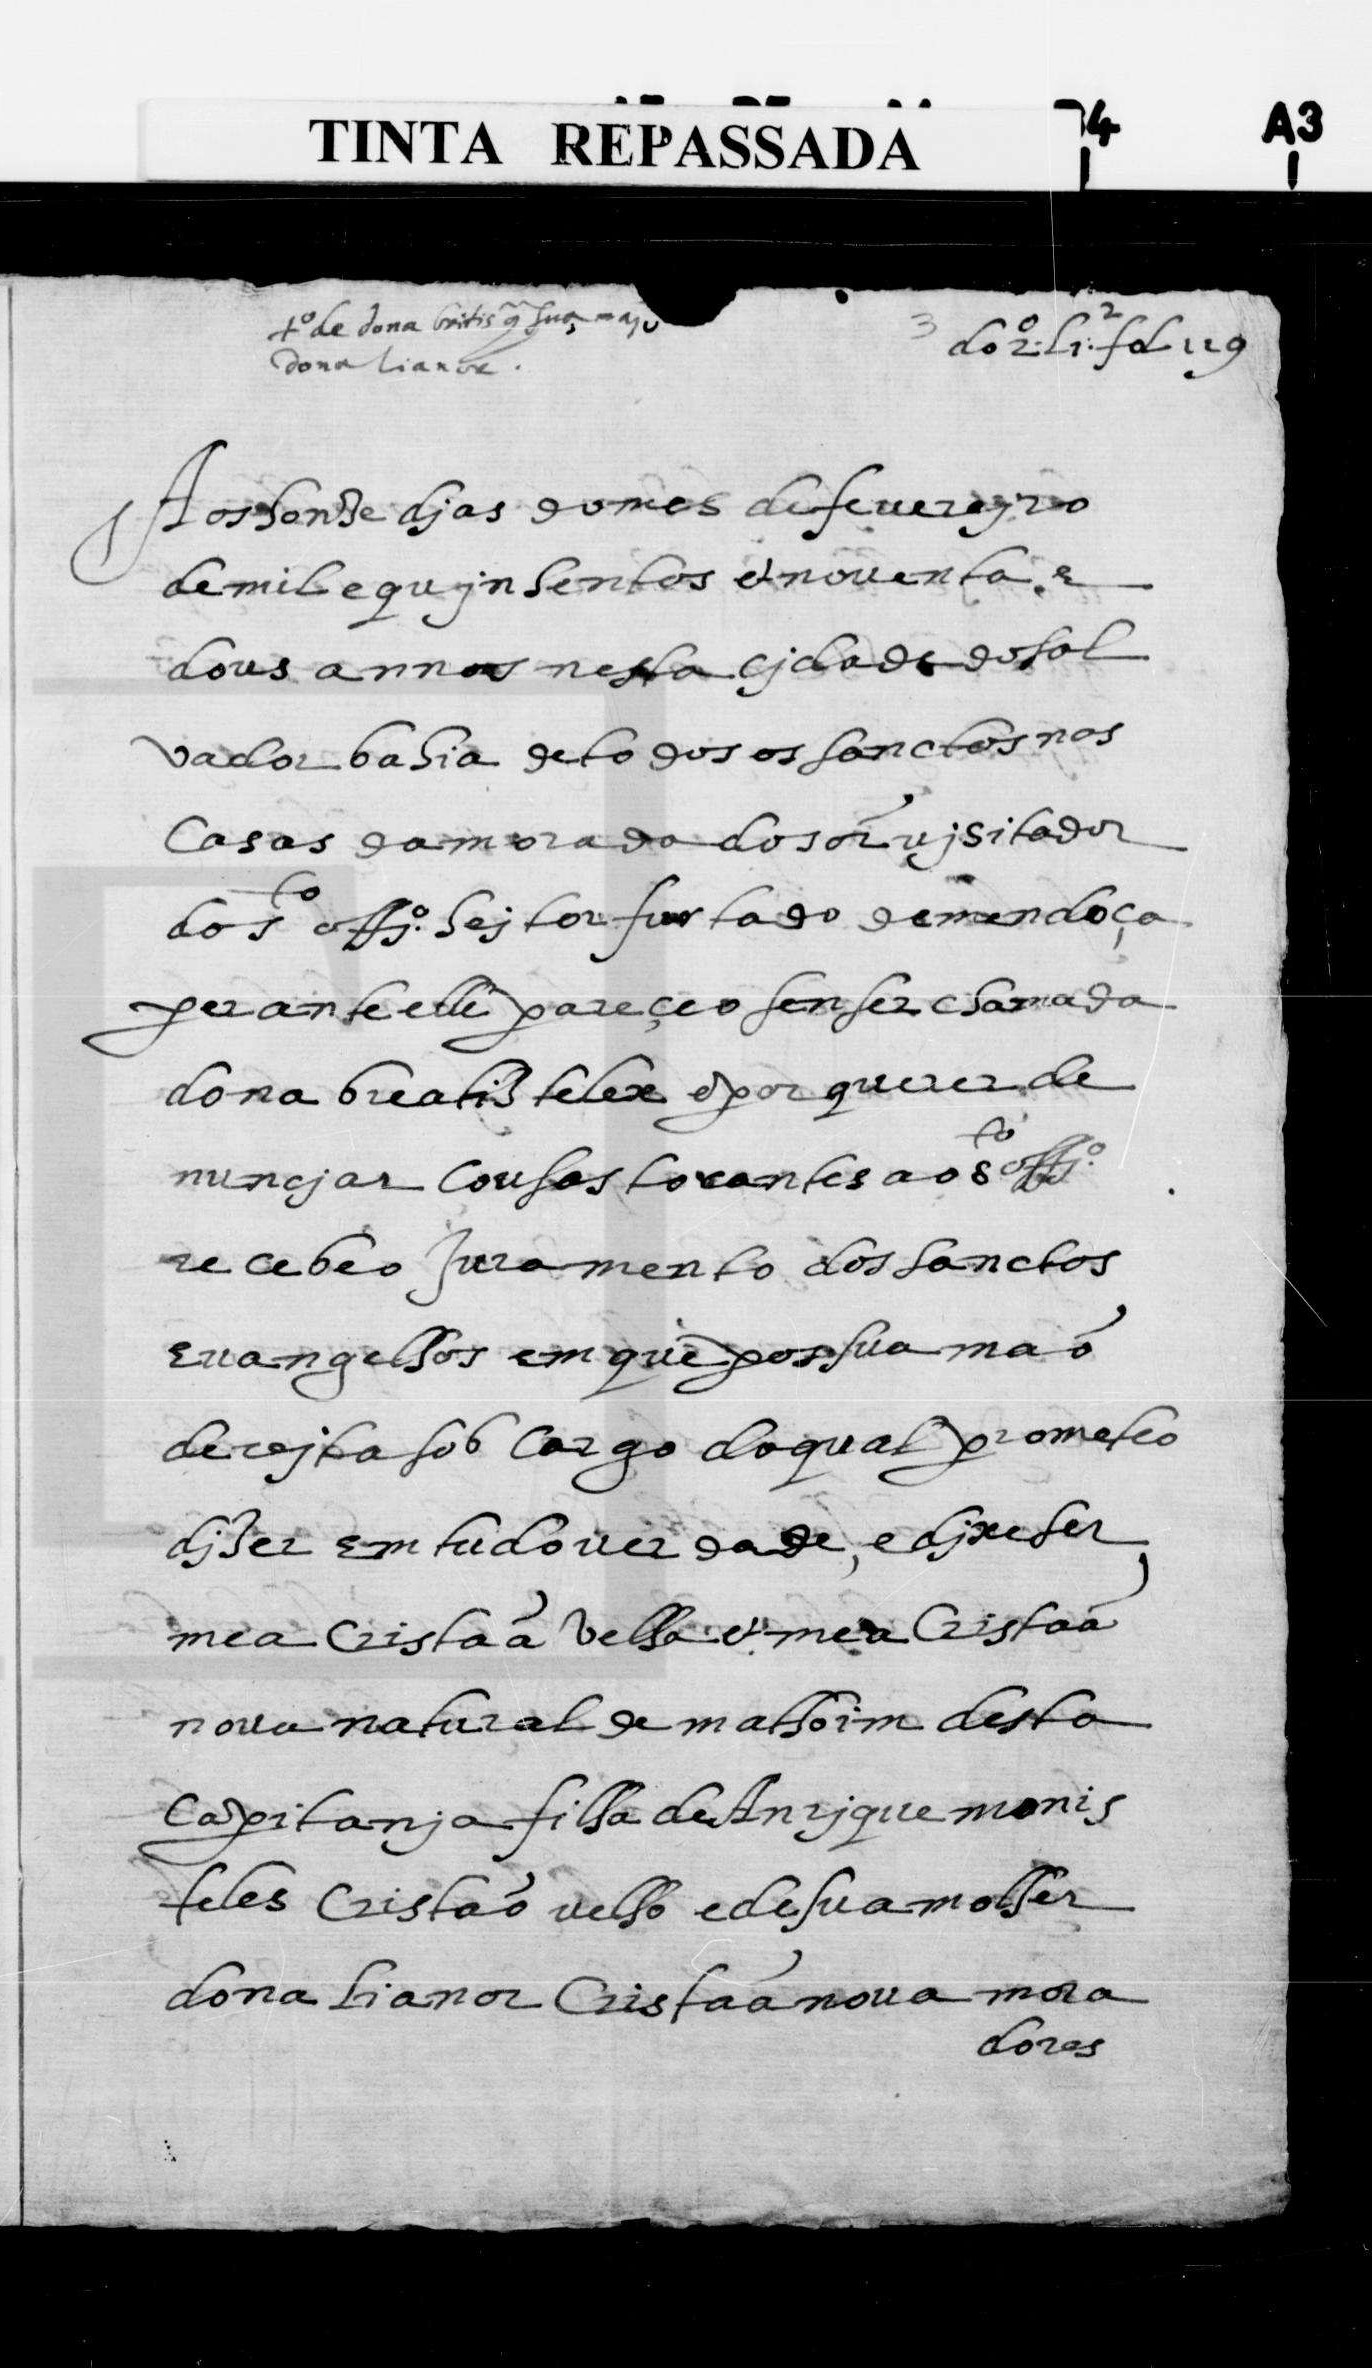 TINTA REPASSADA
4 A3
tº de dona britis q̃ sua maj
dona lianor.
3
do 2º. lº. fol 129
Aos honze djas do mes de feuerejro
de mil e qujnhentos & nouenta e
dous annos nesta cjdade do sal
vador bahia de todos os sanctos nas
Casas da morada do sõr vjsitador
do sto offjº. hejtor furtado de mendoça
perante elle pareçeo sem ser chamada
dona breatis telex & por querer de
nuncjar Cousas tocantes ao sto offjº.
recebeo Juramento dos sanctos
euangelhos em que pos sua mão
derejta sob Cargo do qual prometeo
djzer em tudo uerdade, e djxe ser
mea Cristaã velha & mea Cristaã
noua natural de mathoim desta
Capitanja filha de Anrjque monis
teles Cristão uelho e de sua molher
dona lianor Cristaã noua mora
dores